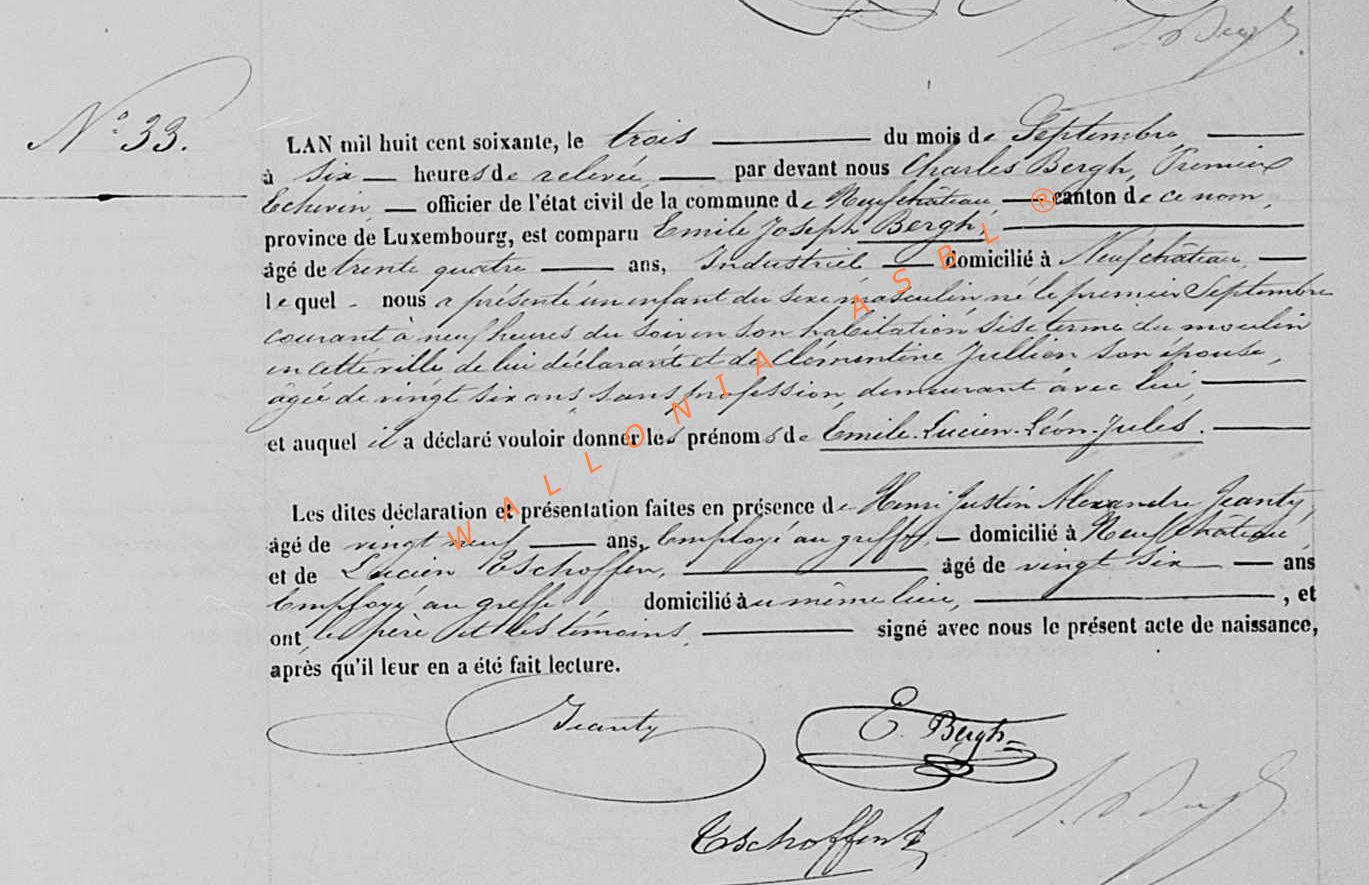 Nº 33.
LAN mil huit cent soixante, le trois du mois de Septembre
à Six heures de relevée par devant nous Charles Bergh, Premier
Echevin, officier de l'état civil de la commune de Neufchâteau canton de ce nom,
province de Luxembourg, est comparu Emile Joseph Bergh,
âgé de trente quatre ans, Industriel domicilié à Neufchâteau,
lequel nous a présenté un enfant du sexe masculin né le premier Septembre
courant à neuf heures du soir en son habitation sise terme du moulin
en cette ville de lui déclarant et de Clémentine Jullien son épouse,
âgée de vingt six ans sans profession, demeurant avec lui,
et auquel il a déclaré vouloir donner les prénoms de Emile-Lucien-Léon-Jules.
Les dites déclaration et présentation faites en présence de Henri Justin Alexandre Jeanty,
âgé de vingt neuf ans, Employé au greffe, domicilié à Neufchâteau
et de Lucien Tschoffen, âgé de vingt six ans
Employé au greffe, domicilié au même lieu, , et
ont le père et les témoins, signé avec nous le présent acte de naissance,
après qu'il leur en a été fait lecture.
Jeanty
E. Bergh
Tschoffen
WALLONIA ASBL ®